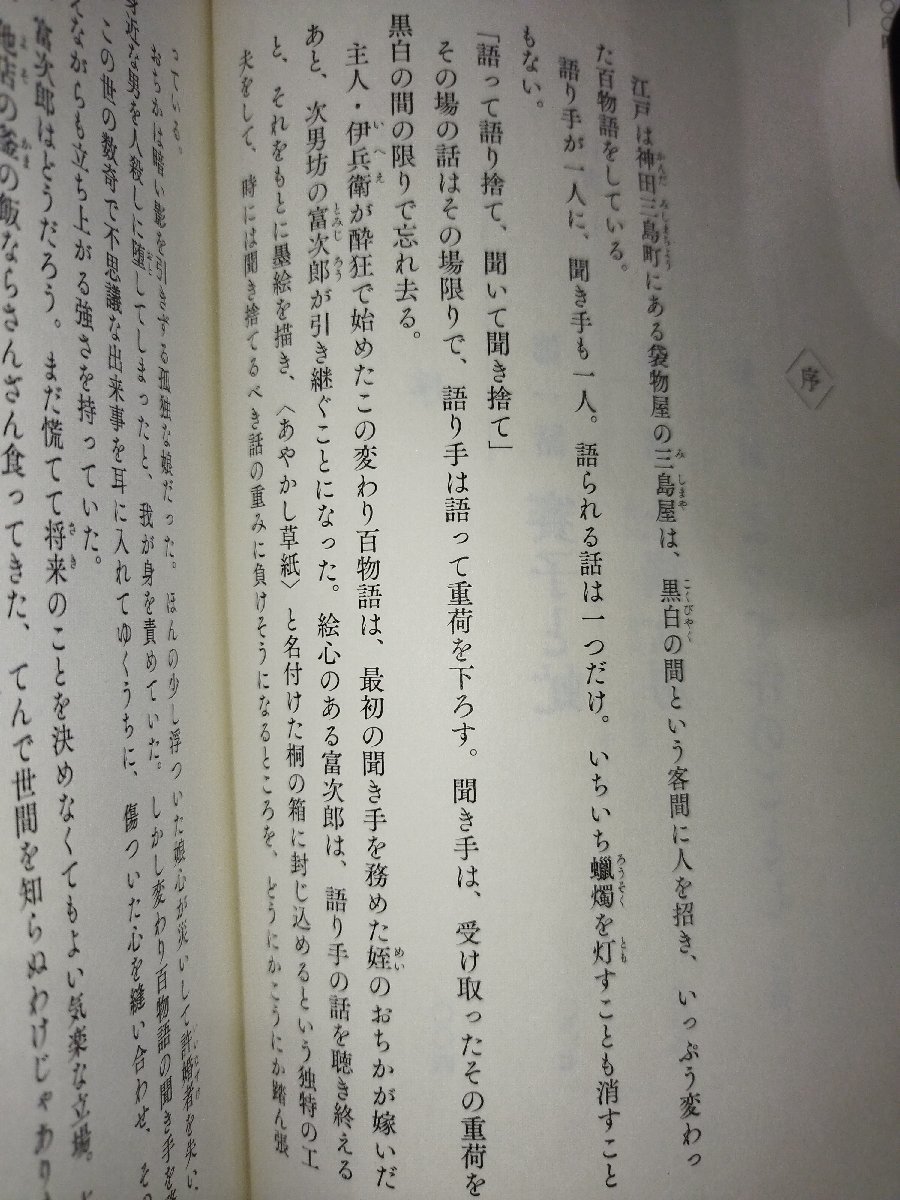 序
江戸は神田三島町にある袋物屋の三島屋は、黒白の間という客間に人を招き、いっぷう変わっ
た百物語をしている。
語り手が一人に、聞き手も一人。語られる話は一つだけ。いちいち蠟燭を灯すことも消すこと
もない。
「語って語り捨て、聞いて聞き捨て」
その場の話はその場限りで、語り手は語って重荷を下ろす。聞き手は、受け取ったその重荷を
黒白の間の限りで忘れ去る。
主人・伊兵衛が酔狂で始めたこの変わり百物語は、最初の聞き手を務めた姪のおちかが嫁いだ
あと、次男坊の富次郎が引き継ぐことになった。絵心のある富次郎は、語り手の話を聴き終える
と、それをもとに墨絵を描き、〈あやかし草紙〉と名付けた桐の箱に封じ込めるという独特の工
夫をして、時には聞き捨てるべき話の重みに負けそうになるところを、どうにかこうにか踏ん張
っている。
おちかは暗い影を引きずる孤独な娘だった。ほんの少し浮ついた娘心が災いして許婚者を失い、
身近な男を人殺しに堕してしまったと、我が身を責めていた。しかし変わり百物語の聞き手を
この世の数奇で不思議な出来事を耳に入れてゆくうちに、傷ついた心を縫い合わせ、その
えながらも立ち上がる強さを持っていた。
富次郎はどうだろう。まだ慌てて将来のことを決めなくてもよい気楽な立場。
の釜の飯ならさんざん食ってきた、てんで世間を知らぬわけじゃあり